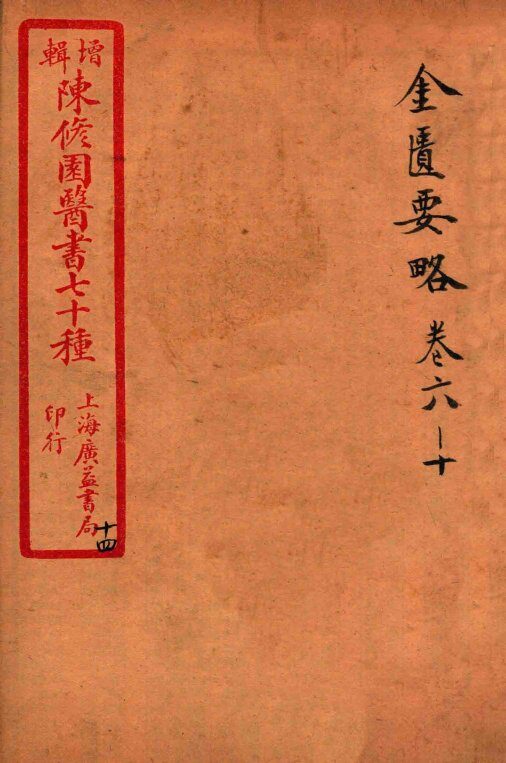 金匱要略 卷六—十
增輯
陳修園醫書七十種
上海廣益書局
印行
十四